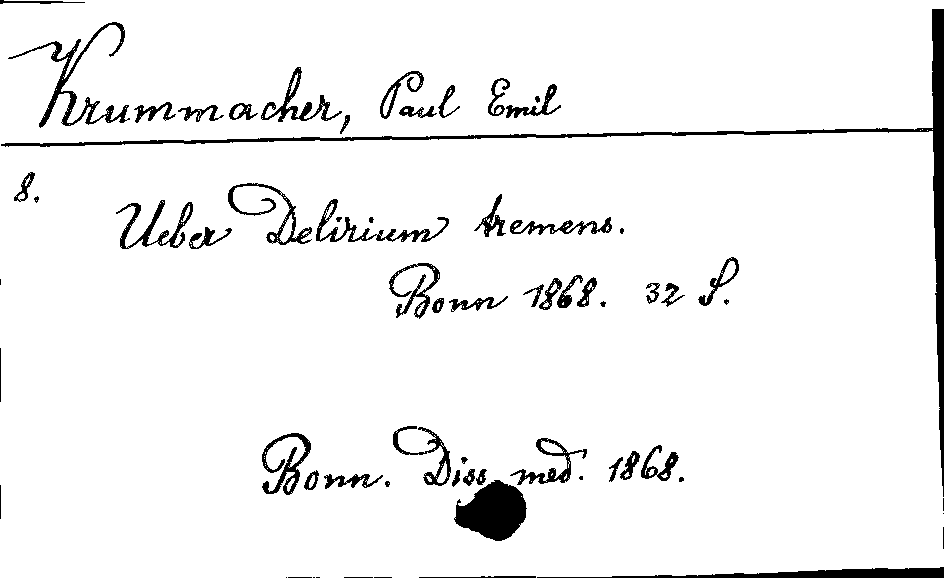 Krummacher, Paul Emil
8.
Ueber Delirium tremens.
Bonn 1868. 32 S.
Bonn. Diss. med. 1868.